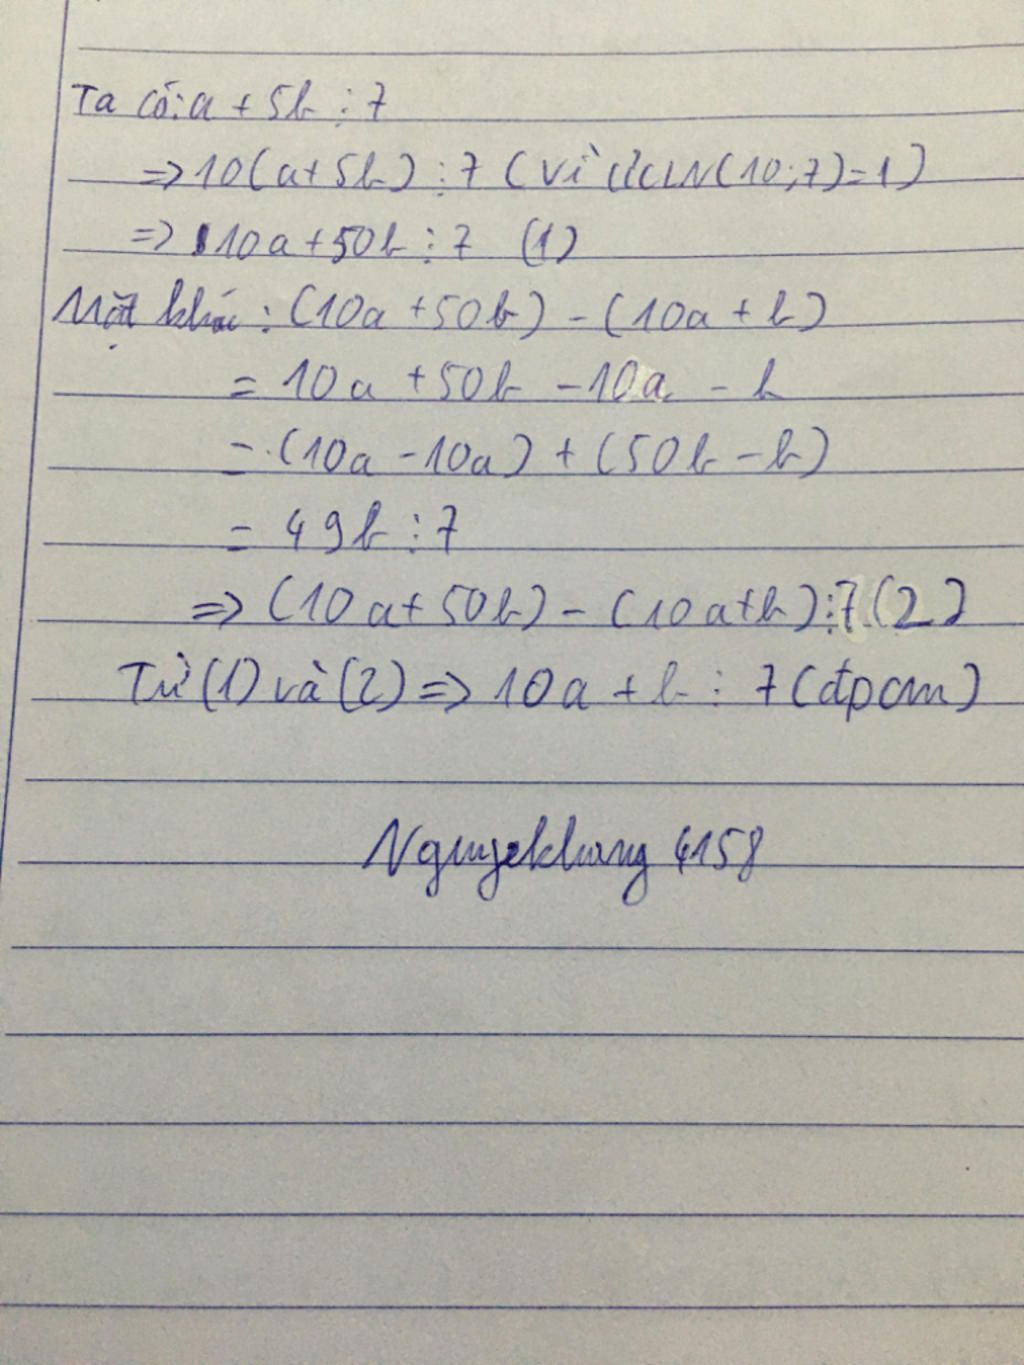 Ta có: a + 5b ⋮ 7
=> 10(a+5b) ⋮ 7 (vì ƯCLN(10;7)=1)
=> 10a+50b ⋮ 7 (1)
Mặt khác: (10a+50b) - (10a+b)
= 10a +50b -10a - b
= (10a -10a) + (50b - b)
= 49b ⋮ 7
=> (10a+50b) - (10a+b) ⋮ 7 (2)
Từ (1) và (2) => 10a + b ⋮ 7 (đpcm)
4158